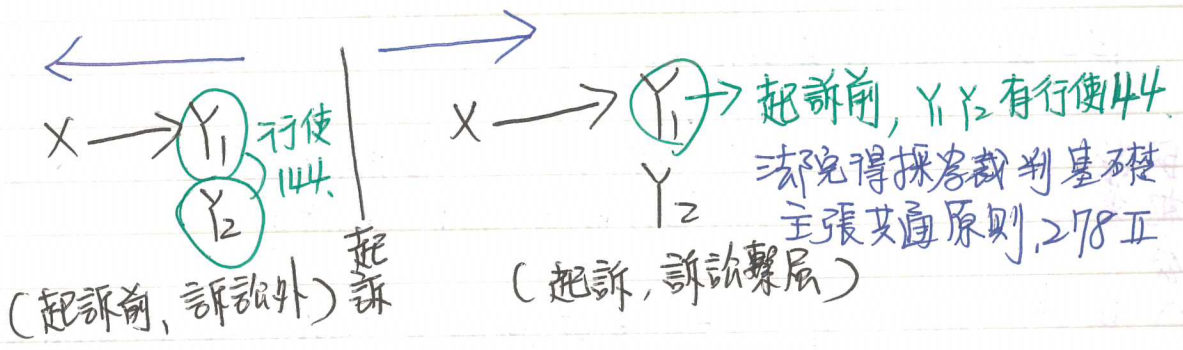 X → Y1 行使
144.
Y2
起訴
(起訴前, 訴訟外)
X → Y1 → 起訴前, Y1 Y2 有行使144.
法院得採為裁判基礎
Y2
主張共通原則, 278 II
(起訴, 訴訟繫屬)